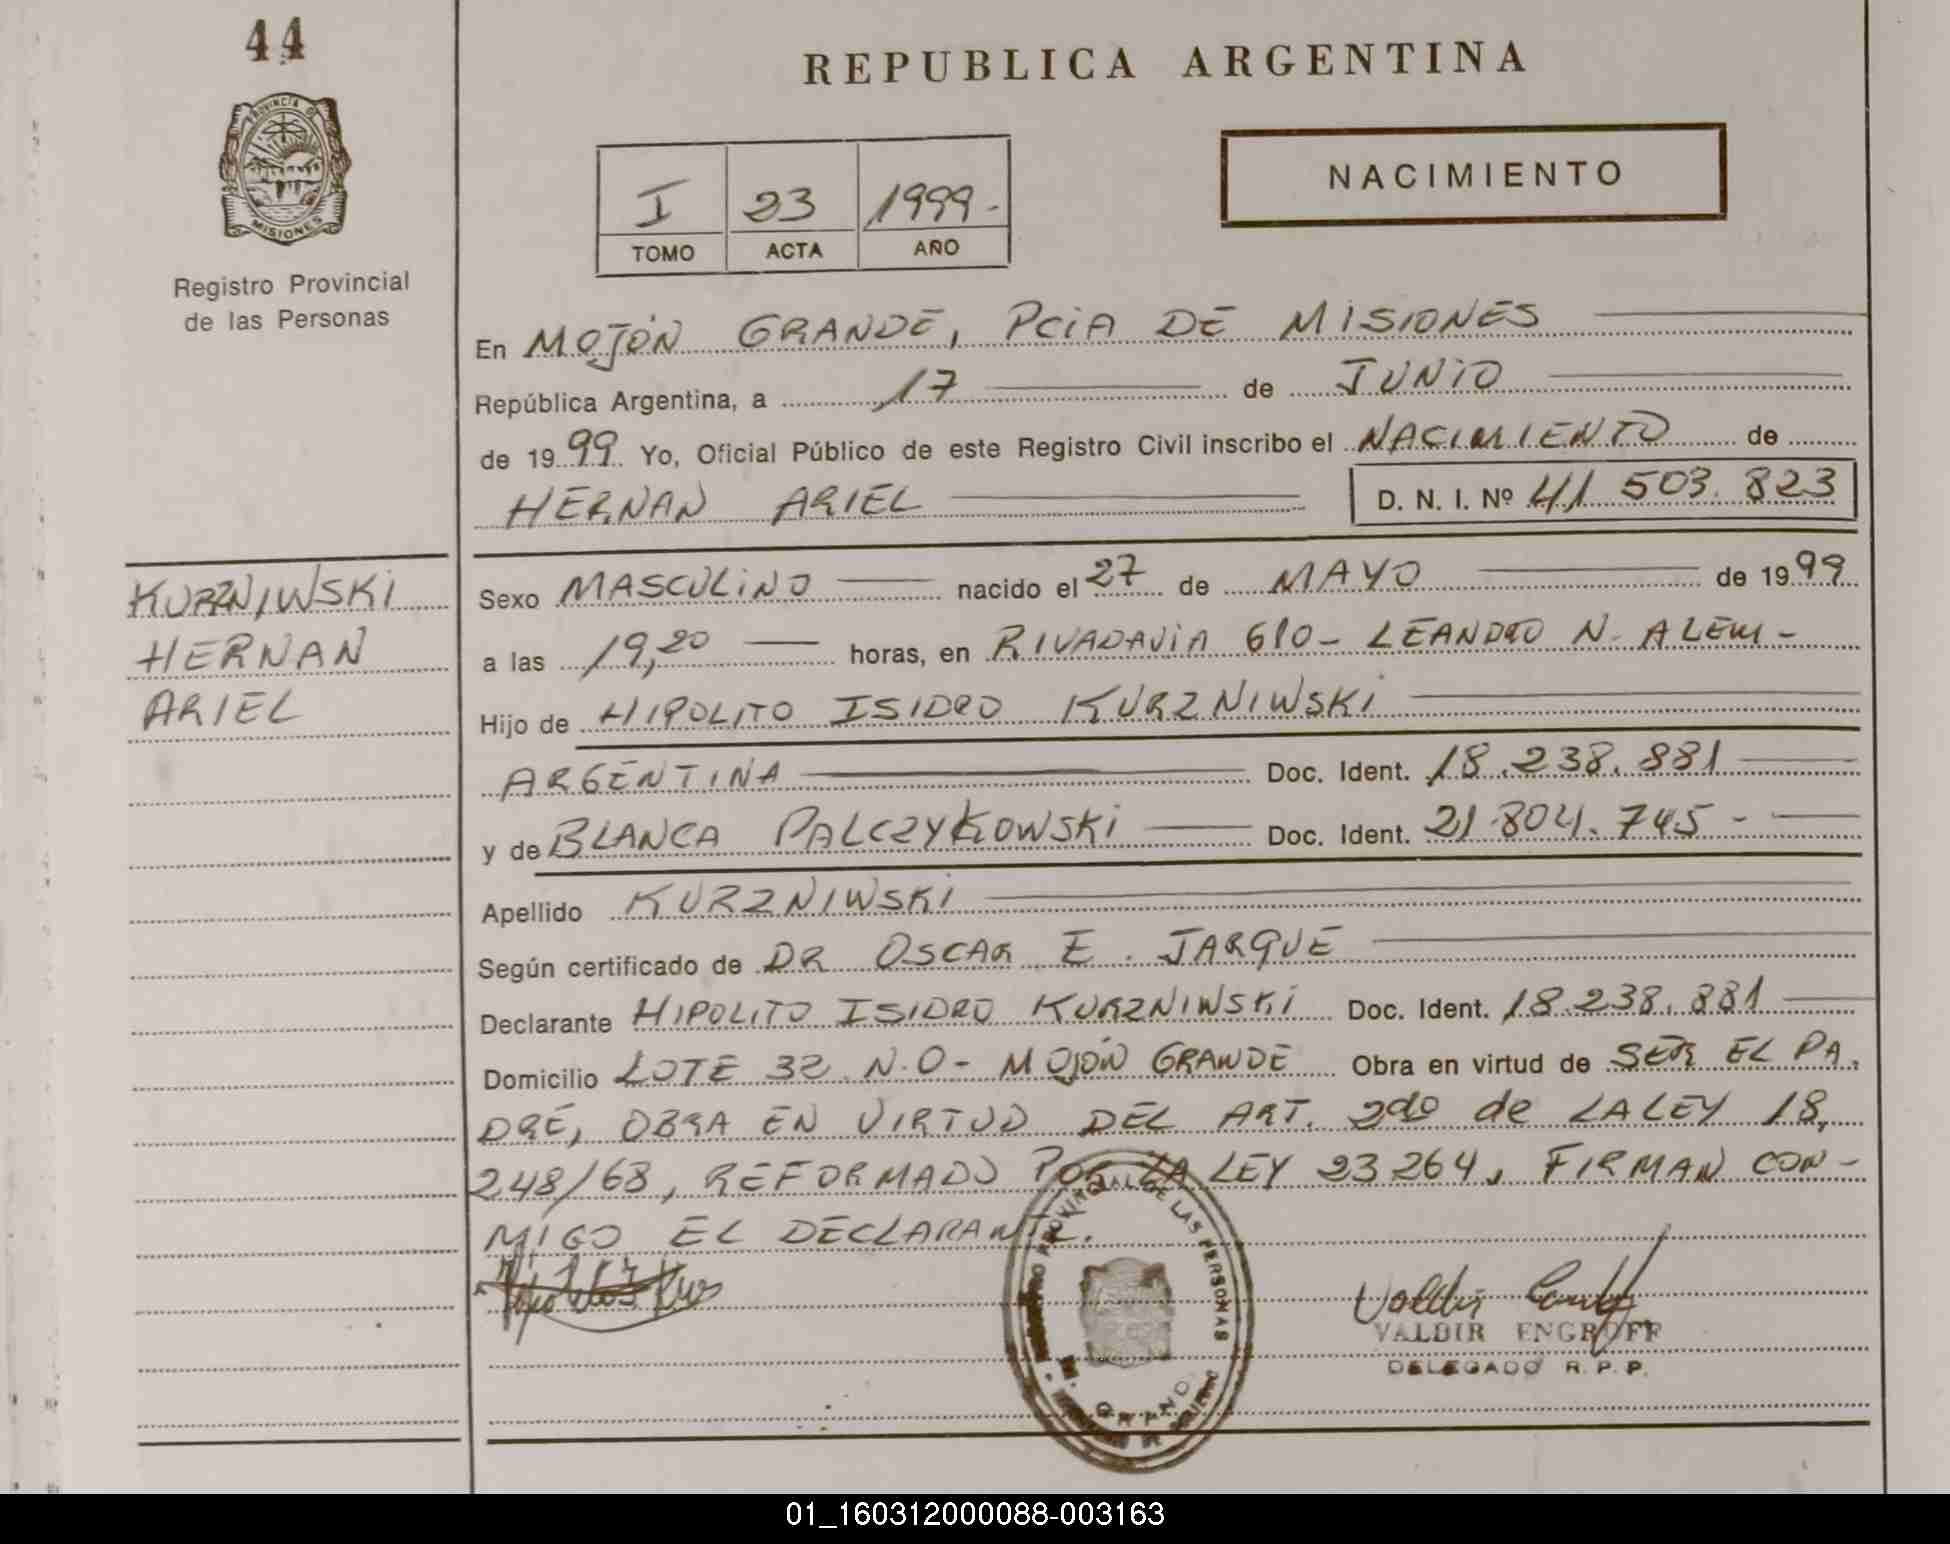 44
REPUBLICA ARGENTINA
PROVINCIA D
MISIONES
Registro Provincial
de las Personas
I 23 1999.-
TOMO ACTA AÑO
NACIMIENTO
En MOJÓN GRANDE, PCIA DE MISIONES
República Argentina, a 17 de JUNIO
de 1999 Yo, Oficial Público de este Registro Civil inscribo el NACIMIENTO de
HERNAN ARIEL D. N. I. Nº 41 503. 823
KURZNIWSKI
HERNAN
ARIEL
Sexo MASCULINO nacido el 27 de MAYO de 1999
a las 19,20 horas, en RIVADAVIA 610- LEANDRO N. ALEM-
Hijo de HIPOLITO ISIDRO KURZNIWSKI
ARGENTINA Doc. Ident. 18.238.881
y de BLANCA PALCZYKOWSKI Doc. Ident. 21.804.745-
Apellido KURZNIWSKI
Según certificado de DR OSCAR E. JARQUE
Declarante HIPOLITO ISIDRO KURZNIWSKI Doc. Ident. 18.238.881
Domicilio LOTE 32 N.O- MOJÓN GRANDE Obra en virtud de SER EL PA.
DRE, OBRA EN VIRTUD DEL ART. 2do de LA LEY 18,
248/68, REFORMADO POR LA LEY 23264, FIRMAN CON-
MIGO EL DECLARANTE.
DE LAS PERSONAS
Valdir
VALDIR ENGROFF
DELEGADO R.P.P.
01_160312000088-003163